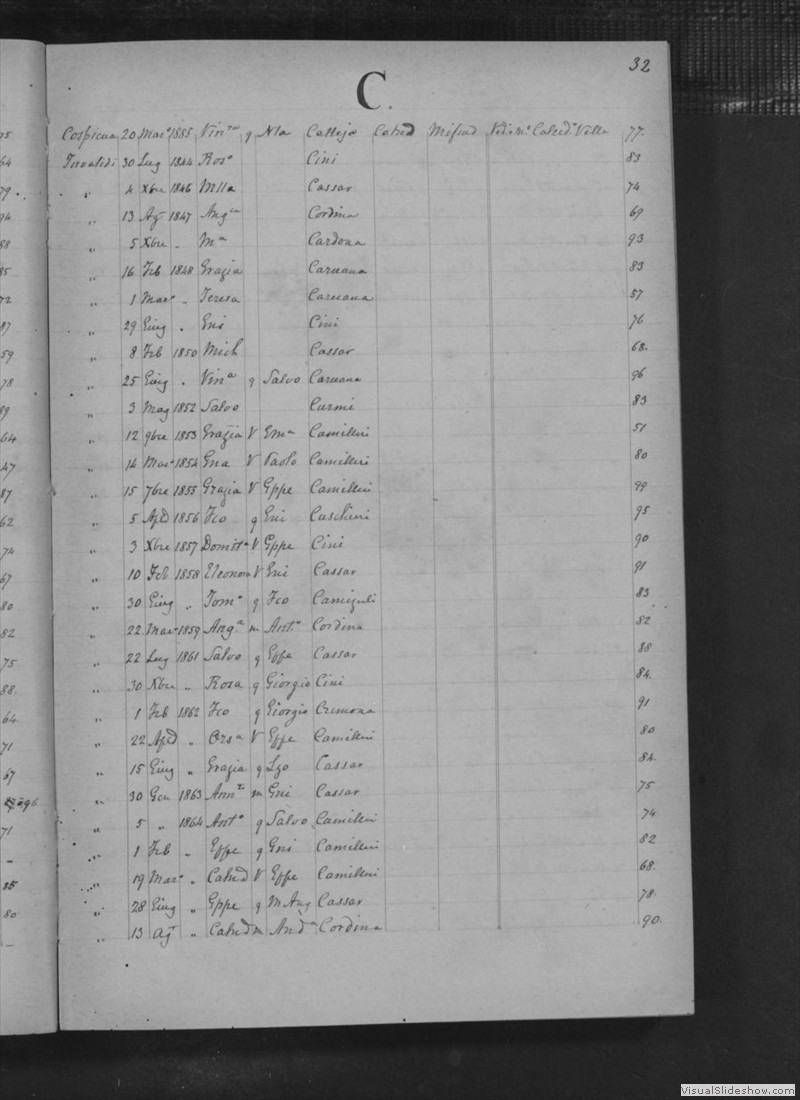 32
C.
Cospicua 20 Mar° 1885 Vin^za q Nla Calleja Catnd Mifsud Ved° m° Catnd^a Vella 77
Invalidi 30 Lug 1844 Ros° Cini 83
„ 4 Xbre 1846 Mlla Cassar 74
„ 13 Ag 1847 Ang^ca Cordina 69
„ 5 Xbre „ M^a Cardona 93
„ 16 Feb 1848 Grazia Caruana 83
„ 1 Mar° „ Teresa Caruana 57
„ 29 Giug „ Gni Cini 76
„ 8 Feb 1850 Mich Cassar 68.
„ 25 Giug „ Vin^a q Salvo Caruana 96
„ 3 Mag 1852 Salvo Curmi 83
„ 12 9bre 1853 Grazia V Em^a Camilleri 51
„ 14 Mar° 1854 Gna V Paolo Camilleri 80
„ 15 7bre 1855 Grazia V Gppe Camilleri 99
„ 5 Apl 1856 Fco q Gni Cuschieri 95
„ 3 Xbre 1857 Domit^a V Gppe Cini 90
„ 10 Feb 1858 Eleonora V Gni Cassar 91
„ 30 Giug „ Tom° q Fco Camizuli 83
„ 22 Mar° 1859 Ang^a m Ant° Cordina 82
„ 22 Lug 1861 Salvo q Gppe Cassar 88
„ 30 Xbre „ Rosa q Giorgio Cini 84.
„ 1 Feb 1862 Fco q Giorgio Cremona 91
„ 22 Apl „ Ors^a V Gppe Camilleri 80
„ 15 Giug „ Grazia q Lzo Cassar 84.
„ 30 Gen 1863 Ann^ta m Gni Cassar 75
„ 5 „ 1864 Ant° q Salvo Camilleri 74
„ 1 Feb „ Gppe q Gni Camilleri 82
„ 19 Mar° „ Catnd V Gppe Camilleri 68.
„ 28 Giug „ Gppe q M Ang Cassar 78.
„ 13 Ag „ Catnd m And^a Cordina 90.
VisualSlideshow.com